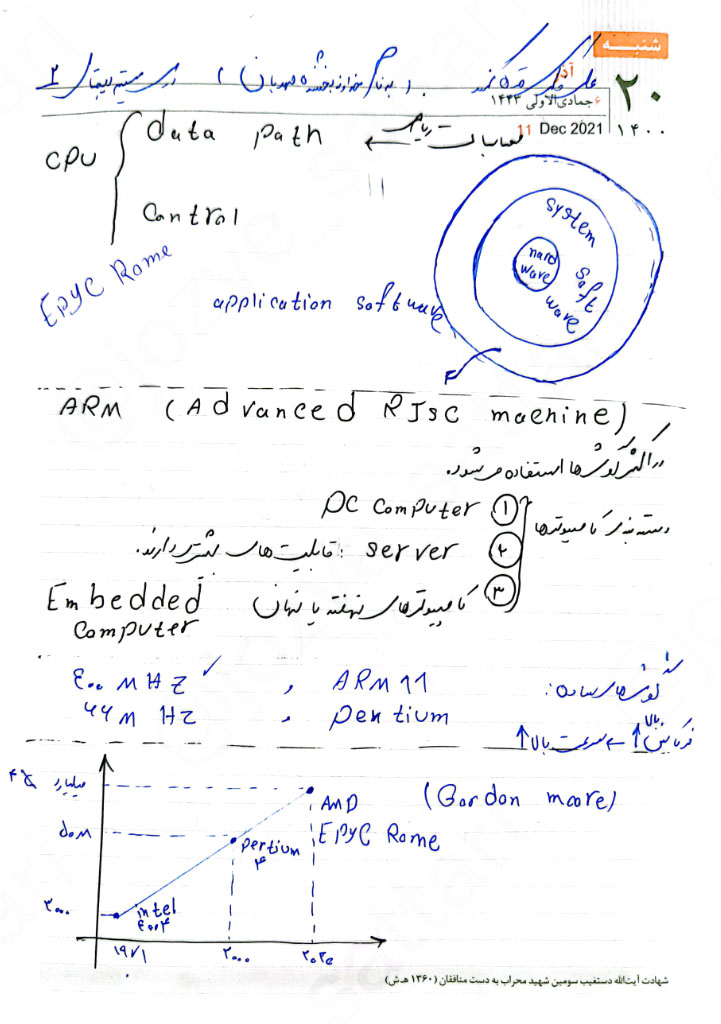 شنبه
آذر
۲۰
۱۴۰۰
۶ جمادی‌الاولی ۱۴۴۳
11 Dec 2021
(به نام خداوند بخشنده مهربان)
CPU
data path
محاسبات ریاضی
control
EPYC Rome
application software
system software
hard ware
ARM (Advanced RISC machine)
در اکثر گوشی‌ها استفاده می‌شود.
دسته بندی کامپیوترها
۱ PC computer
۲ server : قابلیت های بیشتری دارند.
۳ کامپیوترهای نهفته یا نهان Embedded computer
گوشی های ساده: ARM 11 , ۴۰۰ MHZ ✓
pentium , ۶۶ M HZ
فرکانس بالا ↑ سرعت بالا ↑
(Gordon moore)
میلیارد
AMD EPYC Rome
۵۰ M
pentium ۴
۲۰۰۰
intel ۴۰۰۴
۱۹۷۱
۲۰۰۰
شهادت آیت‌الله دستغیب سومین شهید محراب به دست منافقان (۱۳۶۰ ه‍.ش)